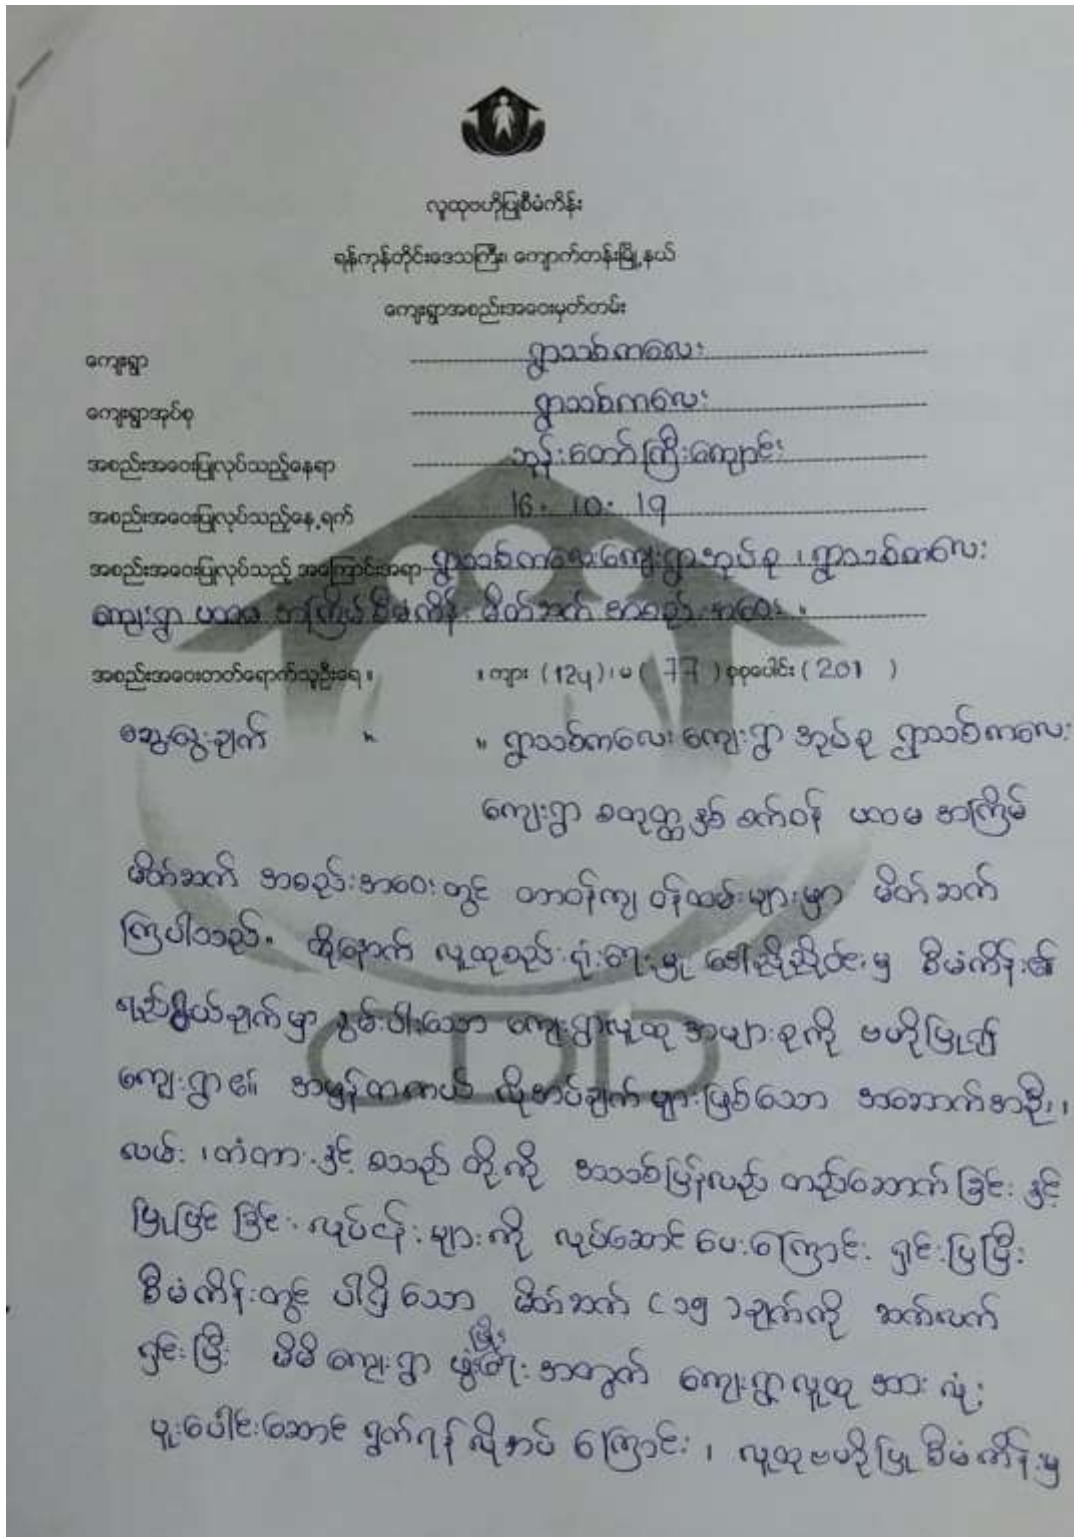 လူထုဗဟိုပြုစီမံကိန်း
ရန်ကုန်တိုင်းဒေသကြီး၊ ကျောက်တန်းမြို့နယ်
ကျေးရွာအစည်းအဝေးမှတ်တမ်း
ကျေးရွာ ရွာသစ်ကလေး
ကျေးရွာအုပ်စု ရွာသစ်ကလေး
အစည်းအဝေးပြုလုပ်သည့်နေရာ ဘုန်းတော်ကြီးကျောင်း
အစည်းအဝေးပြုလုပ်သည့်နေ့ရက် 16. 10. 19
အစည်းအဝေးပြုလုပ်သည့် အကြောင်းအရာ ရွာသစ်ကလေးကျေးရွာအုပ်စု ၊ ရွာသစ်ကလေး
ကျေးရွာ ပထမ အကြိမ် စီမံကိန်း မိတ်ဆက် အစည်းအဝေး ။
အစည်းအဝေးတတ်ရောက်သူဦးရေ ။ ။ ကျား (124) ၊ မ ( 77 ) စုစုပေါင်း ( 201 )
ဆွေးနွေးချက် ။ ။ ရွာသစ်ကလေး ကျေးရွာ အုပ်စု ရွာသစ်ကလေး
ကျေးရွာ စတုတ္ထနှစ် စက်ဝန် ပထမ အကြိမ်
မိတ်ဆက် အစည်းအဝေးတွင် တာဝန်ကျ ဝန်ထမ်းများမှာ မိတ်ဆက်
ကြပါသည်။ ထို့နောက် လူထုစည်းရုံးရေးမှူး ဒေါ်ညိုညိုဝင်းမှ စီမံကိန်း၏
ရည်ရွယ်ချက်မှာ နွမ်းပါးသော ကျေးရွာလူထု အများစုကို ဗဟိုပြု၍
ကျေးရွာ၏ အမှန်တကယ် လိုအပ်ချက်များဖြစ်သော အဆောက်အဦး၊
လမ်း ၊တံတား နှင့် စသည် တို့ကို အသစ်ပြန်လည် တည်ဆောက်ခြင်း နှင့်
ပြုပြင် ခြင်း လုပ်ငန်းများကို လုပ်ဆောင်ပေးကြောင်း ရှင်းပြပြီး
စီမံကိန်းတွင် ပါရှိသော မိတ်ဆက် ( ၁၅ )ချက်ကို ဆက်လက်
ရှင်းပြီး မိမိကျေးရွာ ဖွံ့ဖြိုးရေးအတွက် ကျေးရွာလူထု အားလုံး
ပူးပေါင်းဆောင် ရွက်ရန် လိုအပ် ကြောင်း ၊ လူထုဗဟိုပြု စီမံကိန်းမှ
CDD